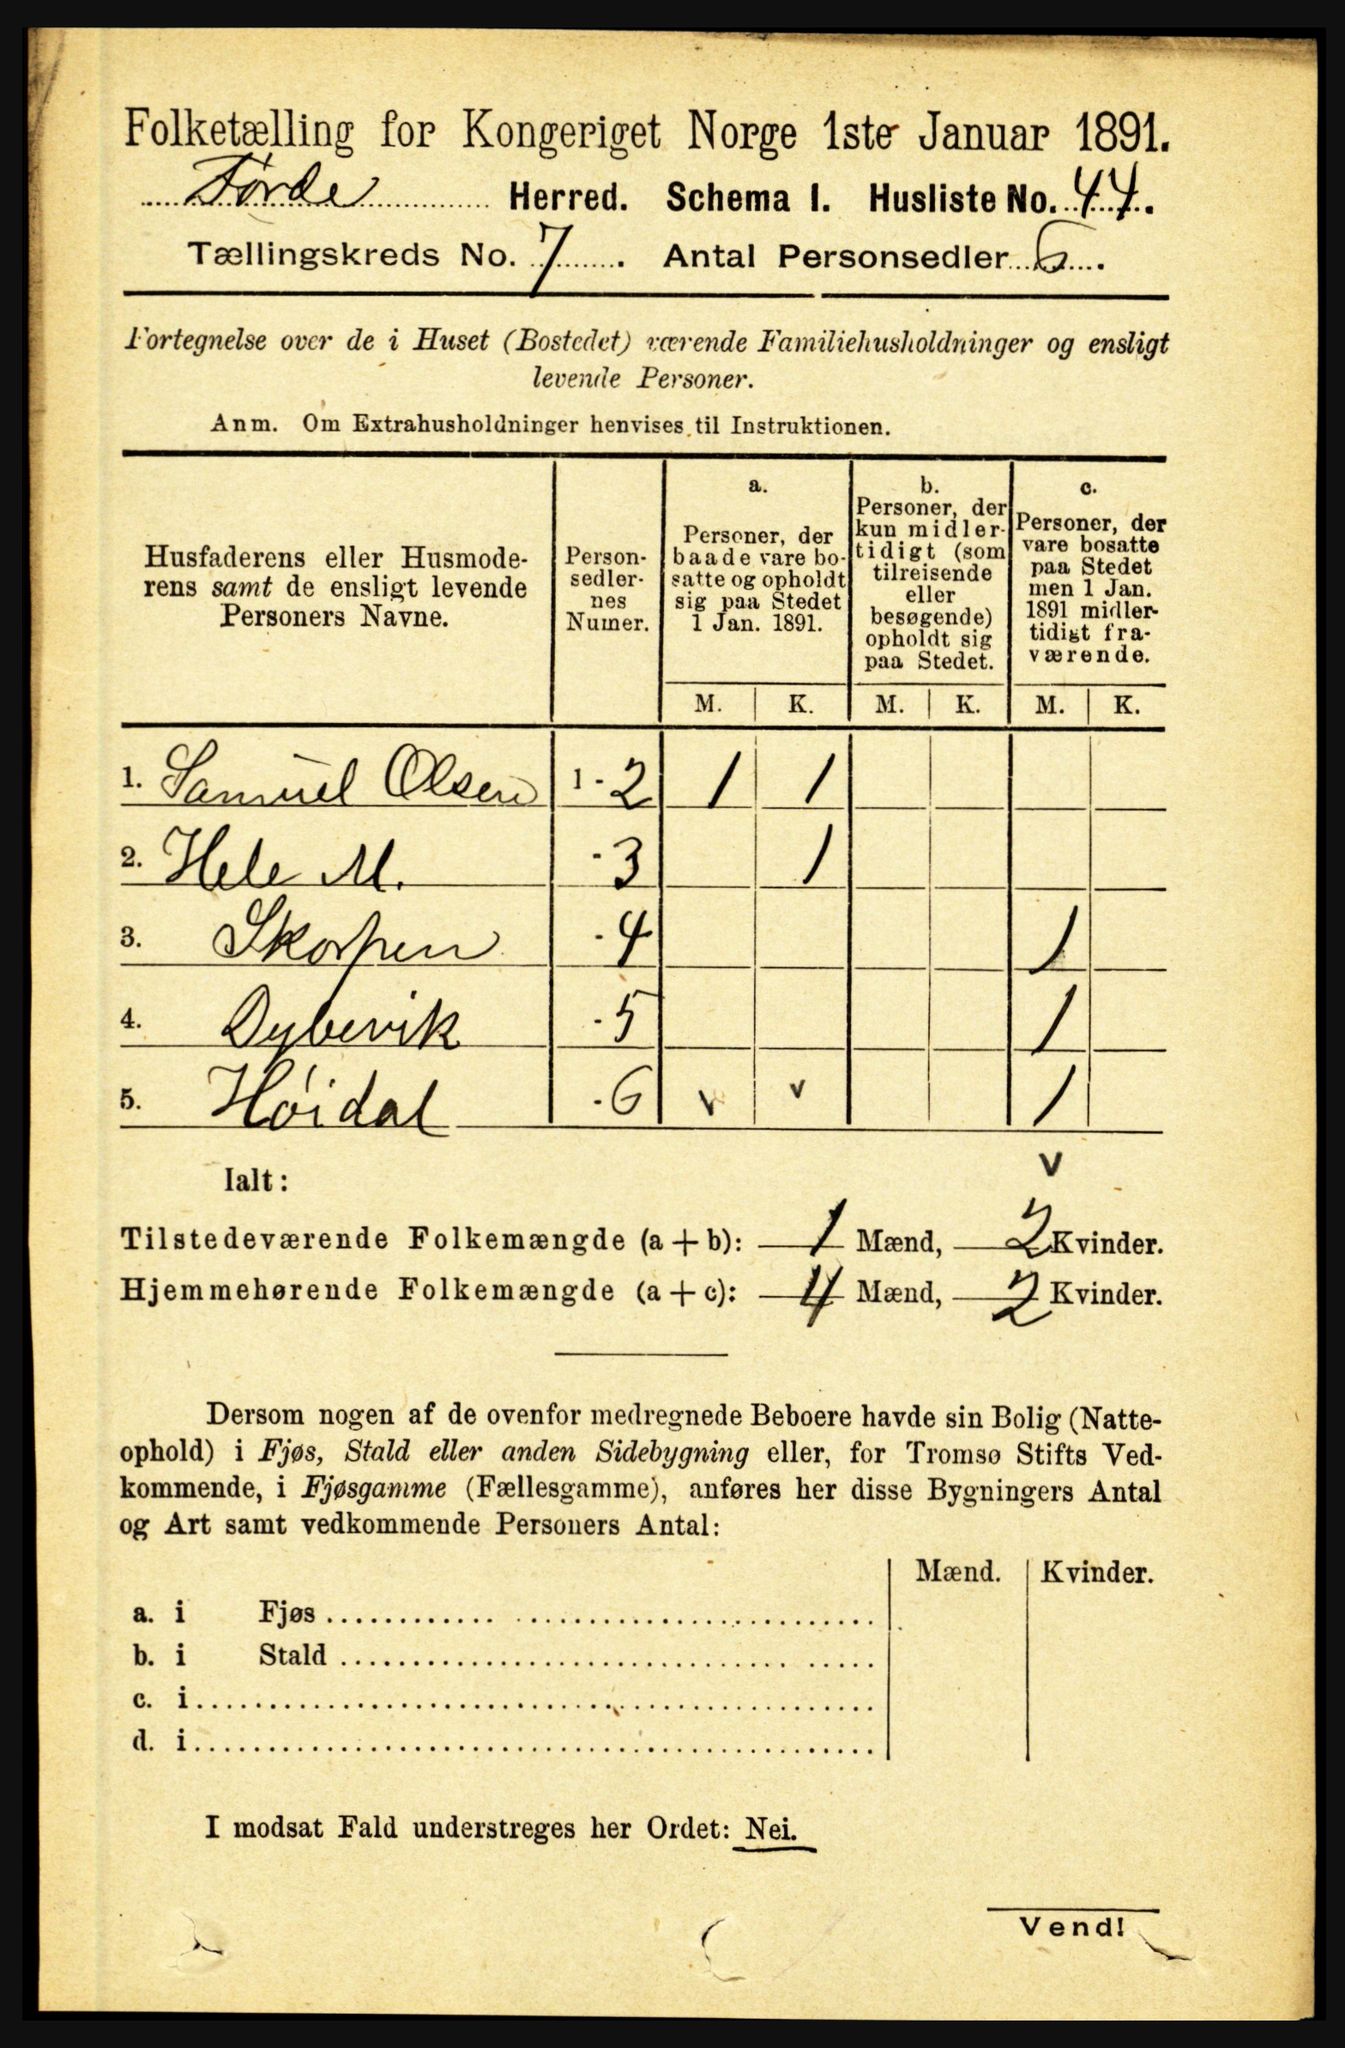 Folketælling for Kongeriget Norge 1ste Januar 1891.
Førde Herred. Schema I. Husliste No. 44.
Tællingskreds No. 7. Antal Personsedler 6.
Fortegnelse over de i Huset (Bostedet) værende Familiehusholdninger og ensligt
levende Personer.
Anm. Om Extrahusholdninger henvises til Instruktionen.
Husfaderens eller Husmode-
rens samt de ensligt levende
Personers Navne.
Person-
sedler-
nes
Numer.
a.
Personer, der
baade vare bo-
satte og opholdt
sig paa Stedet
1 Jan. 1891.
b.
Personer, der
kun midler-
tidigt (som
tilreisende
eller
besøgende)
opholdt sig
paa Stedet.
c.
Personer, der
vare bosatte
paa Stedet
men 1 Jan.
1891 midler-
tidigt fra-
værende.
M. K. M. K. M. K.
1. Samuel Olsen 1 - 2 1 1
2. Hele M. - 3 1
3. Skorpen - 4 1
4. Dybevik - 5 1
5. Høidal - 6 v v 1
v
Ialt:
Tilstedeværende Folkemængde (a + b): 1 Mænd, 2 Kvinder.
Hjemmehørende Folkemængde (a + c): 4 Mænd, 2 Kvinder.
Dersom nogen af de ovenfor medregnede Beboere havde sin Bolig (Natte-
ophold) i Fjøs, Stald eller anden Sidebygning eller, for Tromsø Stifts Ved-
kommende, i Fjøsgamme (Fællesgamme), anføres her disse Bygningers Antal
og Art samt vedkommende Personers Antal:
Mænd. Kvinder.
a. i Fjøs
b. i Stald
c. i
d. i
I modsat Fald understreges her Ordet: Nei.
Vend!